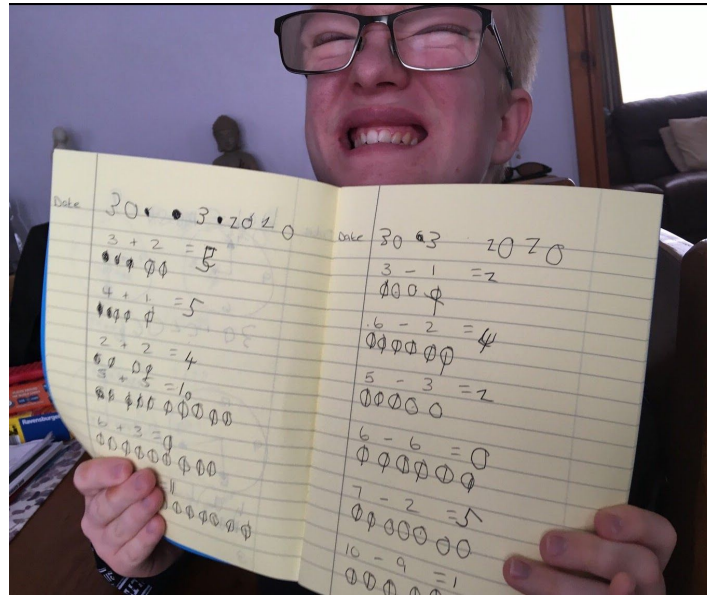 Date 30 . . 3 . 2020
3 + 2 = 5
4 + 1 = 5
2 + 2 = 4
5 + 5 = 10
6 + 3 = 9
= 11
Date 30 . 3 2020
3 - 1 = 2
6 - 2 = 4
5 - 3 = 2
6 - 6 = 0
7 - 2 = 5
10 - 9 = 1
Ravensburger